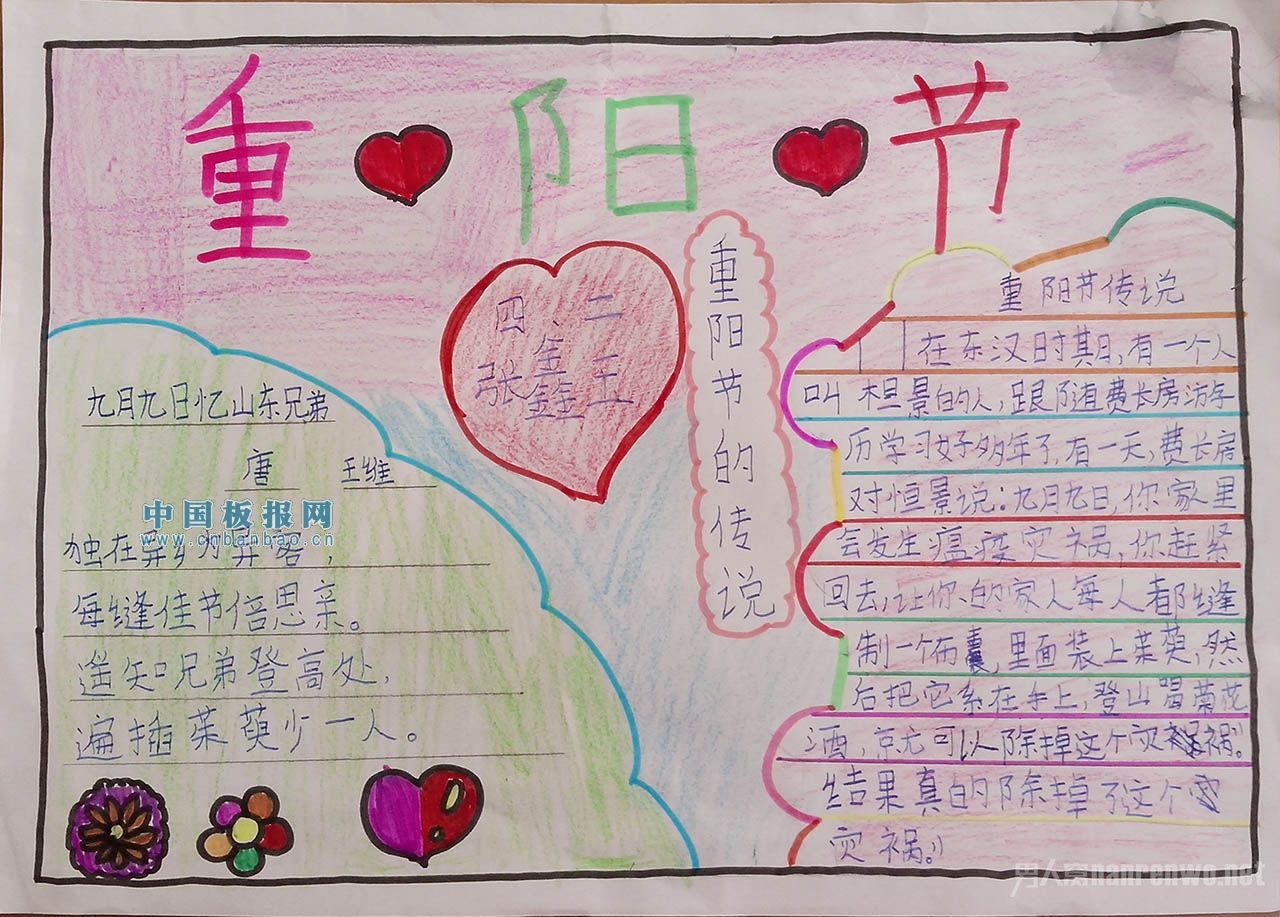 重阳节
四、二
张鑫王
重阳节的传说
九月九日忆山东兄弟
唐 王维
中国板报网
www.cnbanbao.cn
独在异乡为异客，
每缝佳节倍思亲。
遥知兄弟登高处，
遍插茱萸少一人。
重阳节传说
在东汉时其日，有一个人
叫桓景的人，跟随费长房访年
历学习好多年了，有一天，费长房
对恒景说：九月九日，你家里
会发生瘟疫灾祸，你赶紧
回去，让你的家人每人都缝
制一个布囊，里面装上茱萸，然
后把它系在手上，登山喝菊花
酒，就可以除掉这个灾祸。”
结果真的除掉了这个
灾祸。)
男人窝nanrenwo.net